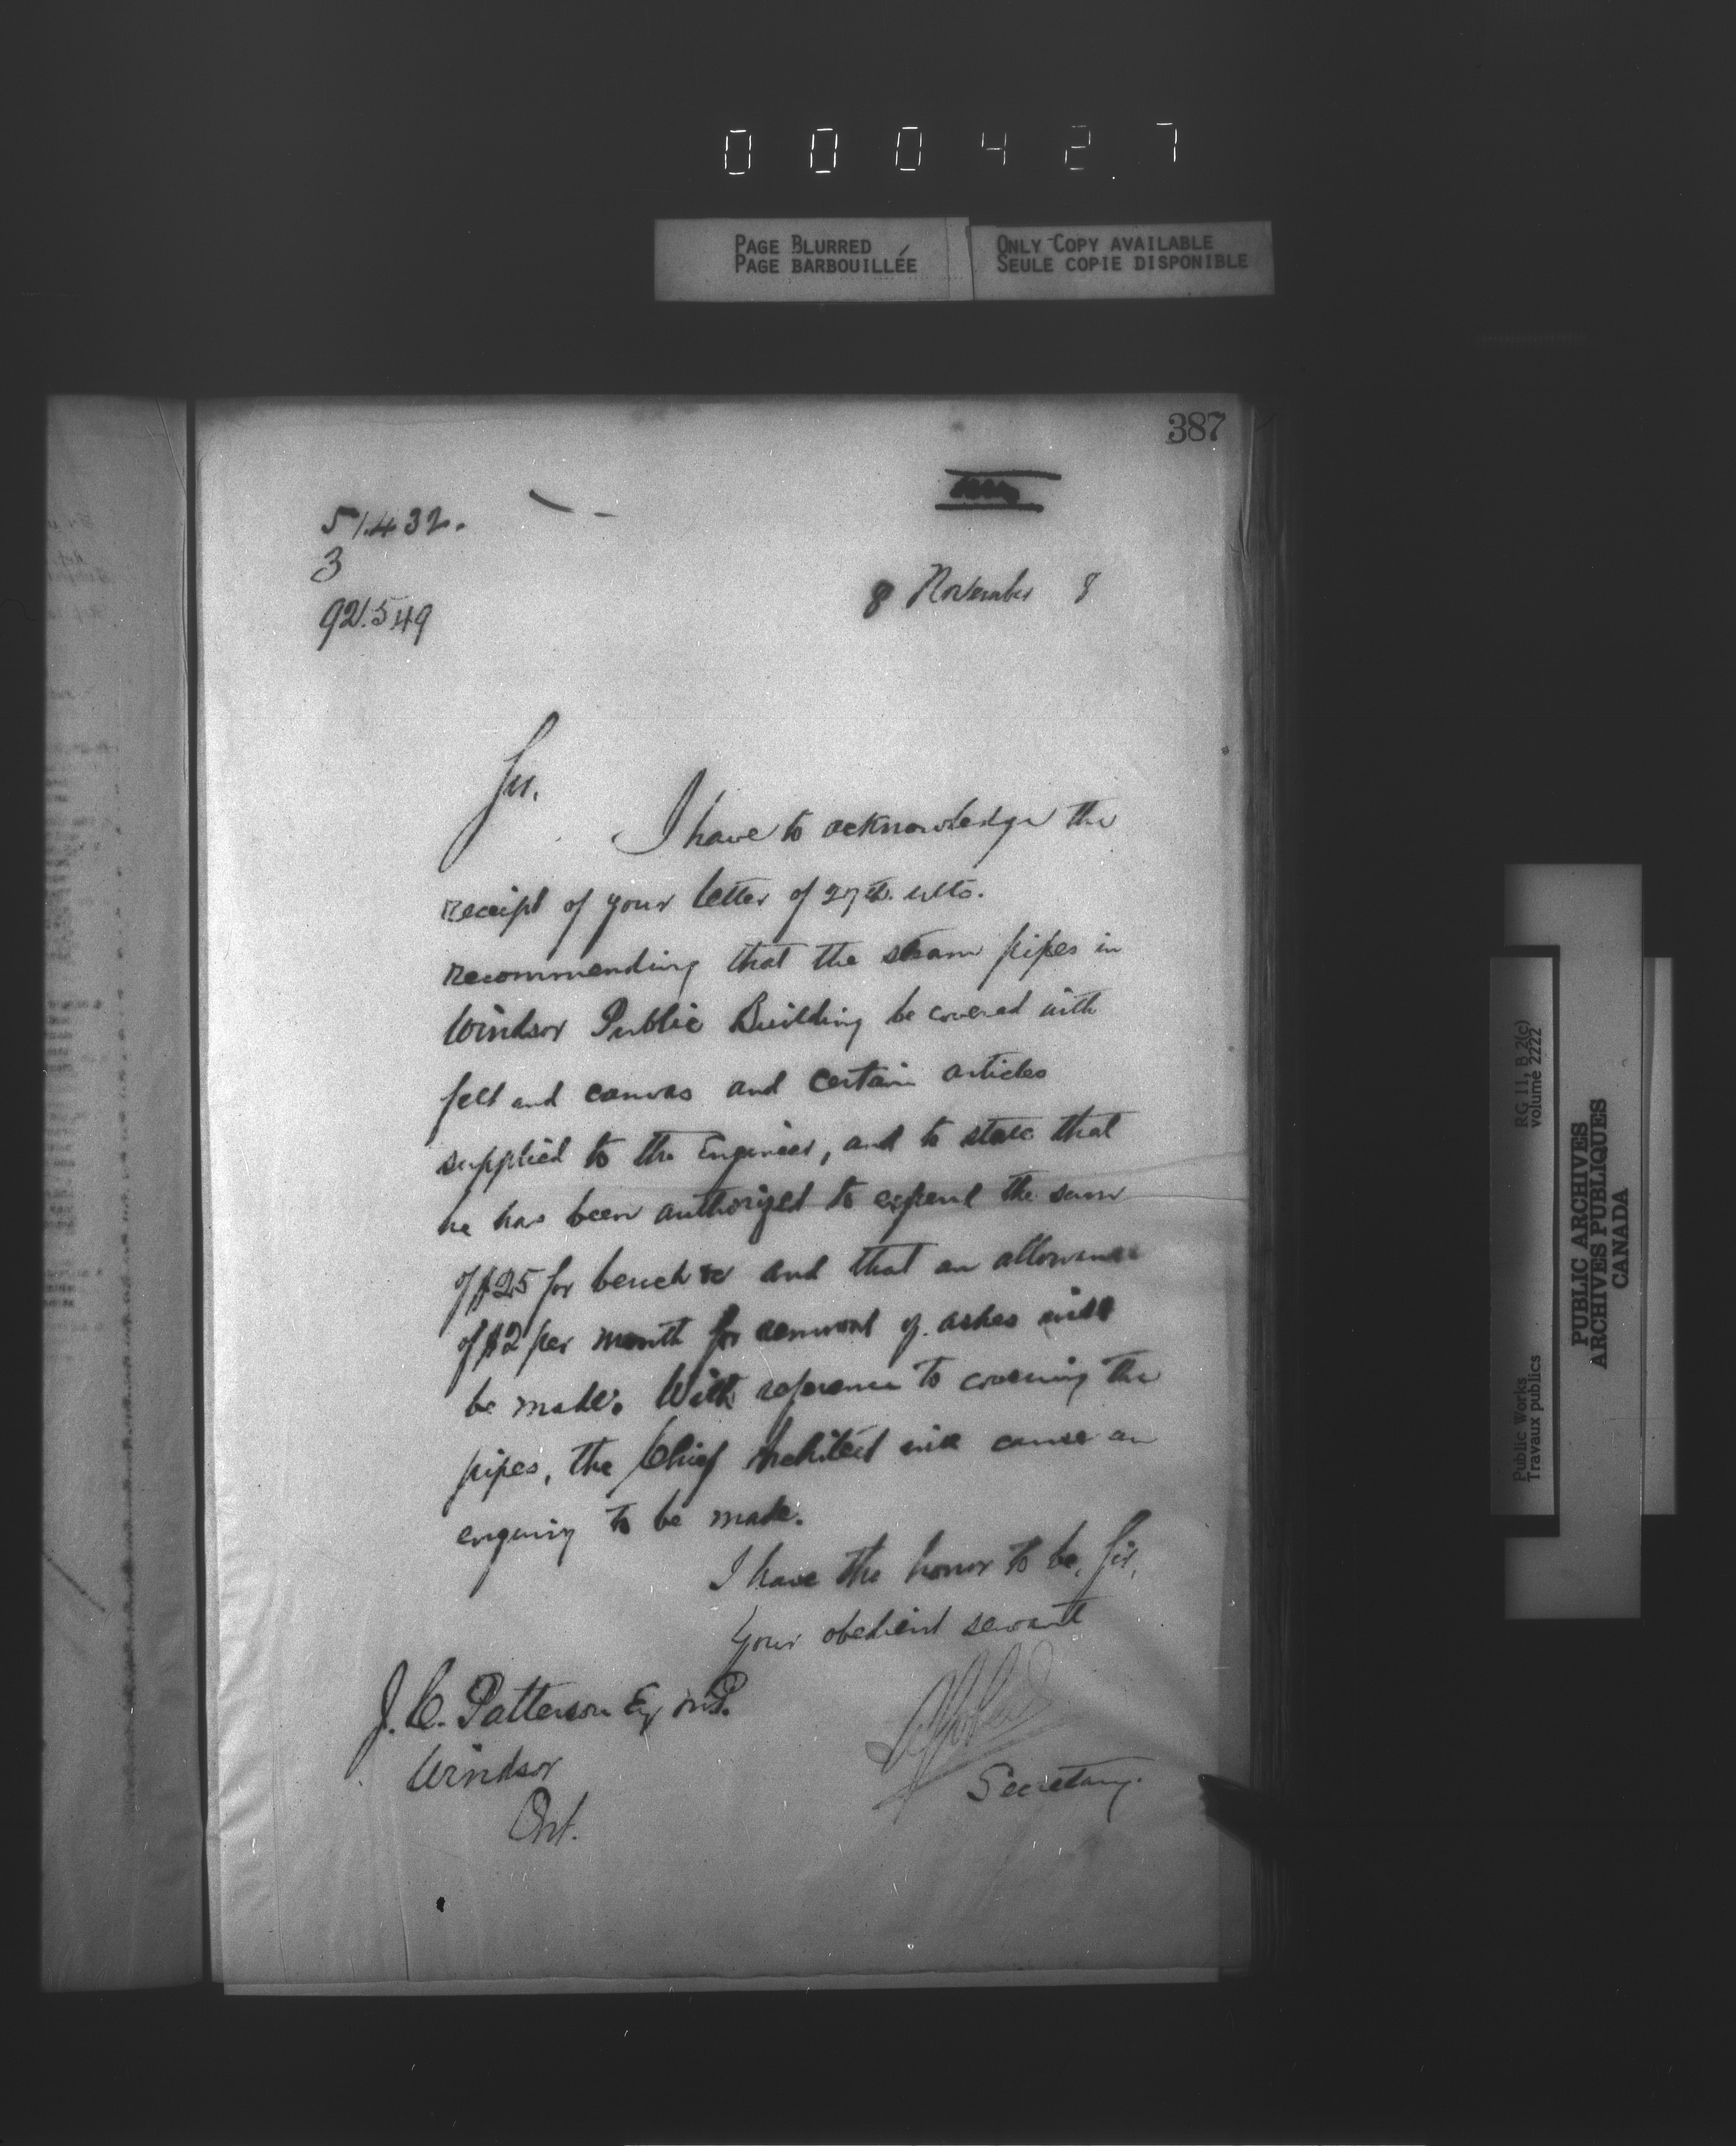 000427
PAGE BLURRED
PAGE BARBOUILLÉE
ONLY COPY AVAILABLE
SEULE COPIE DISPONIBLE
387
51.432.
3
92.549
8 November 8
Sir.
I have to acknowledge the
receipt of your letter of 27th. ulto.
recommending that the steam pipes in
Windsor Public Building be covered with
felt and canvas and certain articles
supplied to the Engineer, and to state that
he has been authorized to expend the sum
of $25 for bench &c and that an allowance
of $2 per month for removal of ashes will
be made. With reference to covering the
pipes, the Chief Architect will cause an
enquiry to be made.
I have the honor to be, Sir,
Your obedient servant
J. C. Patterson Esq M.P.
Windsor
Ont.
Secretary.
RG 11, B 2(c)
volume 2222
Public Works
Travaux publics
PUBLIC ARCHIVES
ARCHIVES PUBLIQUES
CANADA